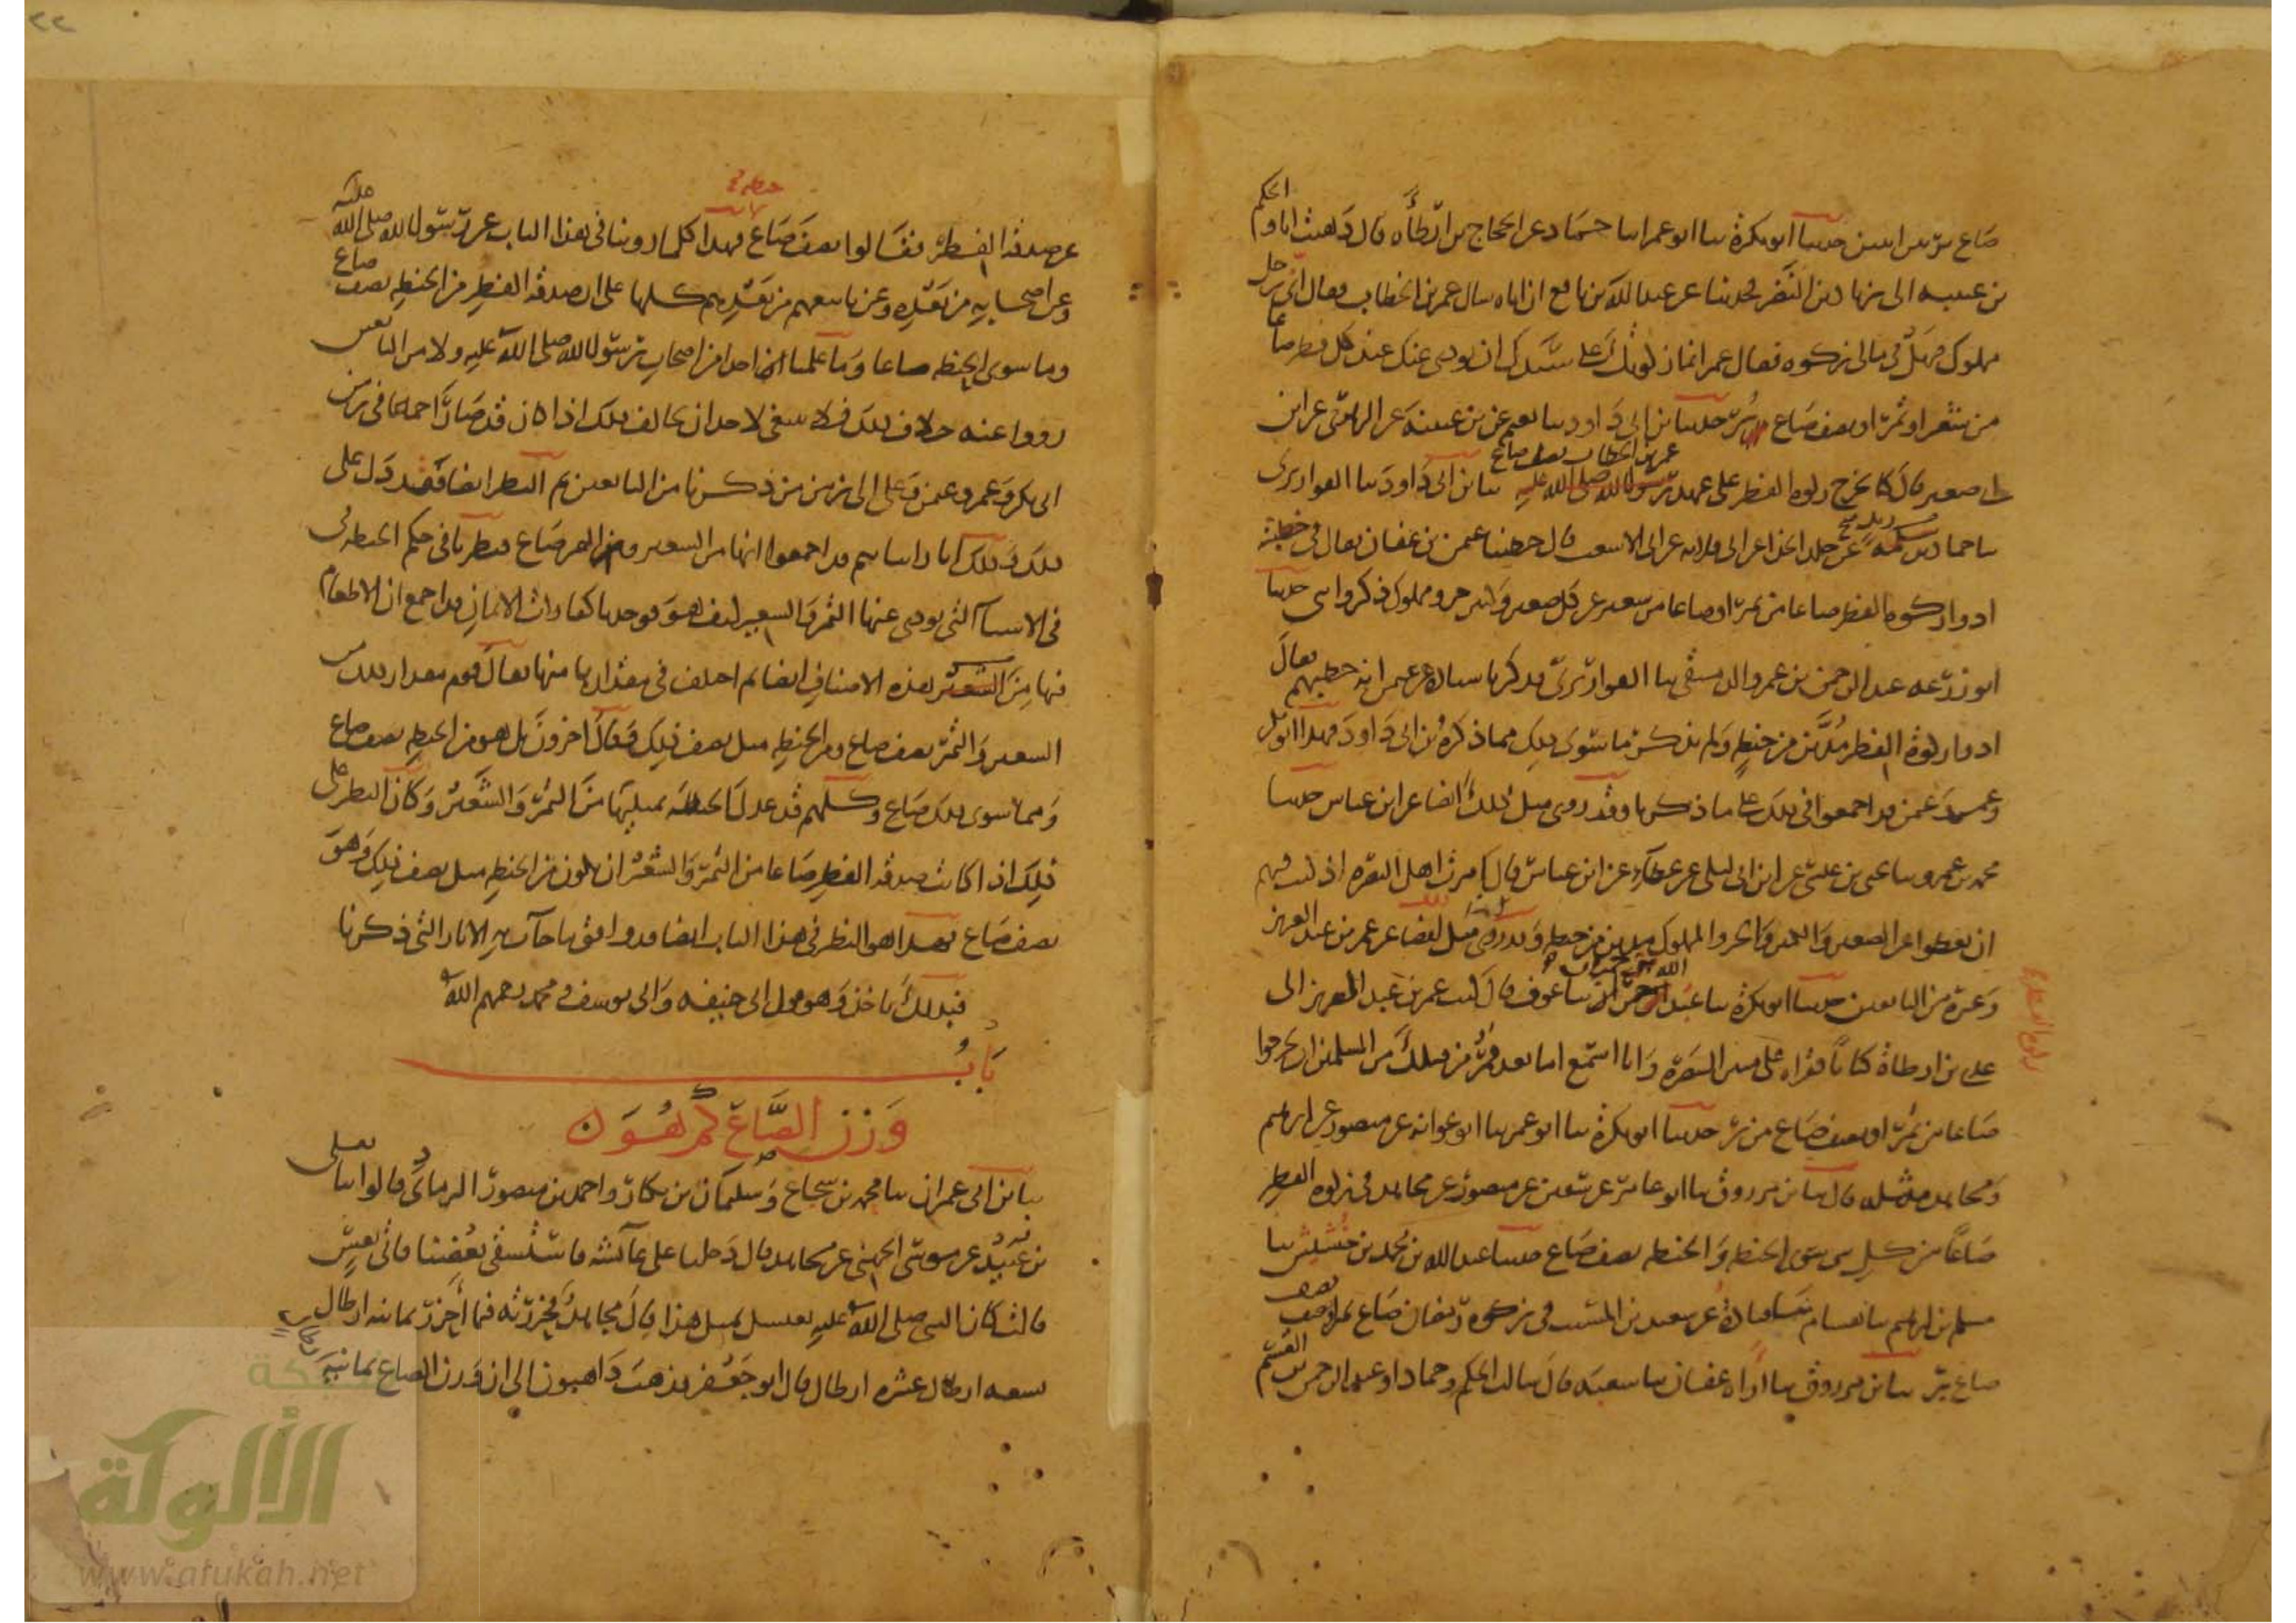 صاع بر بين اثنين حدثنا أبو بكرة ثنا أبو عمر انا حماد عن الحجاج بن ارطأه قال ذهبت انا والحكم
بن عتيبه الى زياد بن النضر فحدثنا عن عبد الله بن نافع ان اباه سال عمر بن الخطاب فقال انى رجل
مملوك فهل في مالى زكوه فقال عمر انما زكوتك على سيدك ان يودى عنك عند كل فطر صاعا
من شعير او تمر او نصف صاع بر حدثنا بن ابى داود ثنا نعيم عن بن عيينه عن الزهرى عن ابن
ابى صعير قال كنا نخرج زكوه الفطر على عهد عمر بن الخطاب نصف صاع ثنا بن ابى داود ثنا القواريرى
ثنا حماد بن زيد عن خلد الحذا عن ابى قلابه عن ابى الاشعث قال خطبنا عثمن بن عفان فقال في خطبته
ادوا زكوه الفطر صاعا من تمر او صاعا من شعير عن كل صغير وكبير حر ومملوك ذكر وانثى حدثنا
ابو زرعه عبد الرحمن بن عمرو الدمشقى ثنا القواريرى فذكر باسناده عن عثمن انه خطبهم فقال
ادوا زكوة الفطر مدين من حنطه ولم يذكر ما سوى ذلك مما ذكره بن ابى داود فهذا ابو بكر
وعمر وعثمن قد اجمعوا في ذلك على ما ذكرنا وقد روى مثل ذلك ايضا عن ابن عباس حدثنا
محمد بن عمرو ثنا يحيى بن عيسى عن ابن ابى ليلى عن عطاء عن ابن عباس قال امرت اهل البصره اذ كنت فيهم
ان يعطوا عن الصغير والكبير والحر والمملوك مدين من حنطه وقد روى مثل ذلك ايضا عن عمر بن عبد العزيز
وغيره من التابعين حدثنا ابو بكرة ثنا عبد الله بن حمران ثنا عوف قال كتب عمر بن عبد العزيز الى
عدى بن ارطاة كتابا فقراه على منبر البصره وانا اسمع اما بعد فمر من قبلك من المسلمين ان يخرجوا
صاعا من تمر او نصف صاع من بر حدثنا ابو بكرة ثنا ابو عمر ثنا ابو عوانه عن منصور عن ابرهيم
ومجاهد مثله قال ثنا بن مرزوق ثنا ابو عامر عن سفين عن منصور عن مجاهد في زكوه الفطر
صاعا من كل شى سوى الحنطه والحنطه نصف صاع حدثنا عبد الله بن محمد بن خشيش ثنا
مسلم بن ابرهيم ثنا هشام ثنا قتادة عن سعيد بن المسيب في زكوه رمضان صاع تمر او نصف
صاع بر ثنا بن مرزوق ثنا عفان ثنا شعبه قال سالت الحكم وحمادا وعبد الرحمن بن القسم
عن صدقه الفطر فقالوا نصف صاع حنطه فهذا كلما روينا في هذا الباب عن رسول الله صلى الله عليه
وعن اصحابه من بعده وعن تابعيهم من بعدهم كلها على ان صدقه الفطر من الحنطه نصف صاع
وما سوى الحنطه صاعا وما علمنا ان احدا من اصحاب رسول الله صلى الله عليه ولا من التابعين
رووا عنه خلاف ذلك فلا ينبغى لاحد ان يخالف ذلك اذا كان قد صار اجماعا في زمن
ابى بكر وعمر وعثمن وعلى الى زمن من ذكرنا من التابعين ثم النظر ايضا فقد دل على
ذلك وذلك انا رايناهم قد اجمعوا انها من الشعير ومن التمر صاع فنظرنا في حكم الحنطه
في الاشيا التى يودى عنها التمر والشعير كيف هو فوجدنا كفارات الايمان قد اجمع ان الاطعام
فيها من هذه الاصناف ايضا ثم اختلف في مقدارها منها فقال قوم مقدار ذلك من
الشعير والتمر نصف صاع ومن الحنطه مثل نصف ذلك وقال اخرون بل هو من الحنطه نصف صاع
ومما سوى ذلك صاع وكلهم قد عدل الحنطه بمثليها من التمر والشعير وكان النظر على
ذلك اذا كانت صدقه الفطر صاعا من التمر والشعير ان يكون من الحنطه مثل نصف ذلك وهو
نصف صاع فهذا هو النظر في هذا الباب ايضا قد وافق ما جات به الاثار التى ذكرنا
فبذلك ناخذ وهو قول ابى حنيفه وابى يوسف ومحمد رحمهم الله
باب
وزن الصاع كم هو
ثنا بن ابى عمران ثنا محمد بن شجاع وسليمان بن بكار واحمد بن منصور الرمادى قالوا ثنا يعلى
بن عبيد عن موسى الجهنى عن مجاهد قال دخلنا على عائشه فاستسقى بعضنا فاتى بعس
قالت كان النبى صلى الله عليه يغتسل بمثل هذا قال مجاهد فحزرته فيما احزر ثمانيه ارطال
تسعه ارطال عشره ارطال قال ابو جعفر فذهب ذاهبون الى ان وزن الصاع ثمانيه
الألوكة
www.alukah.net